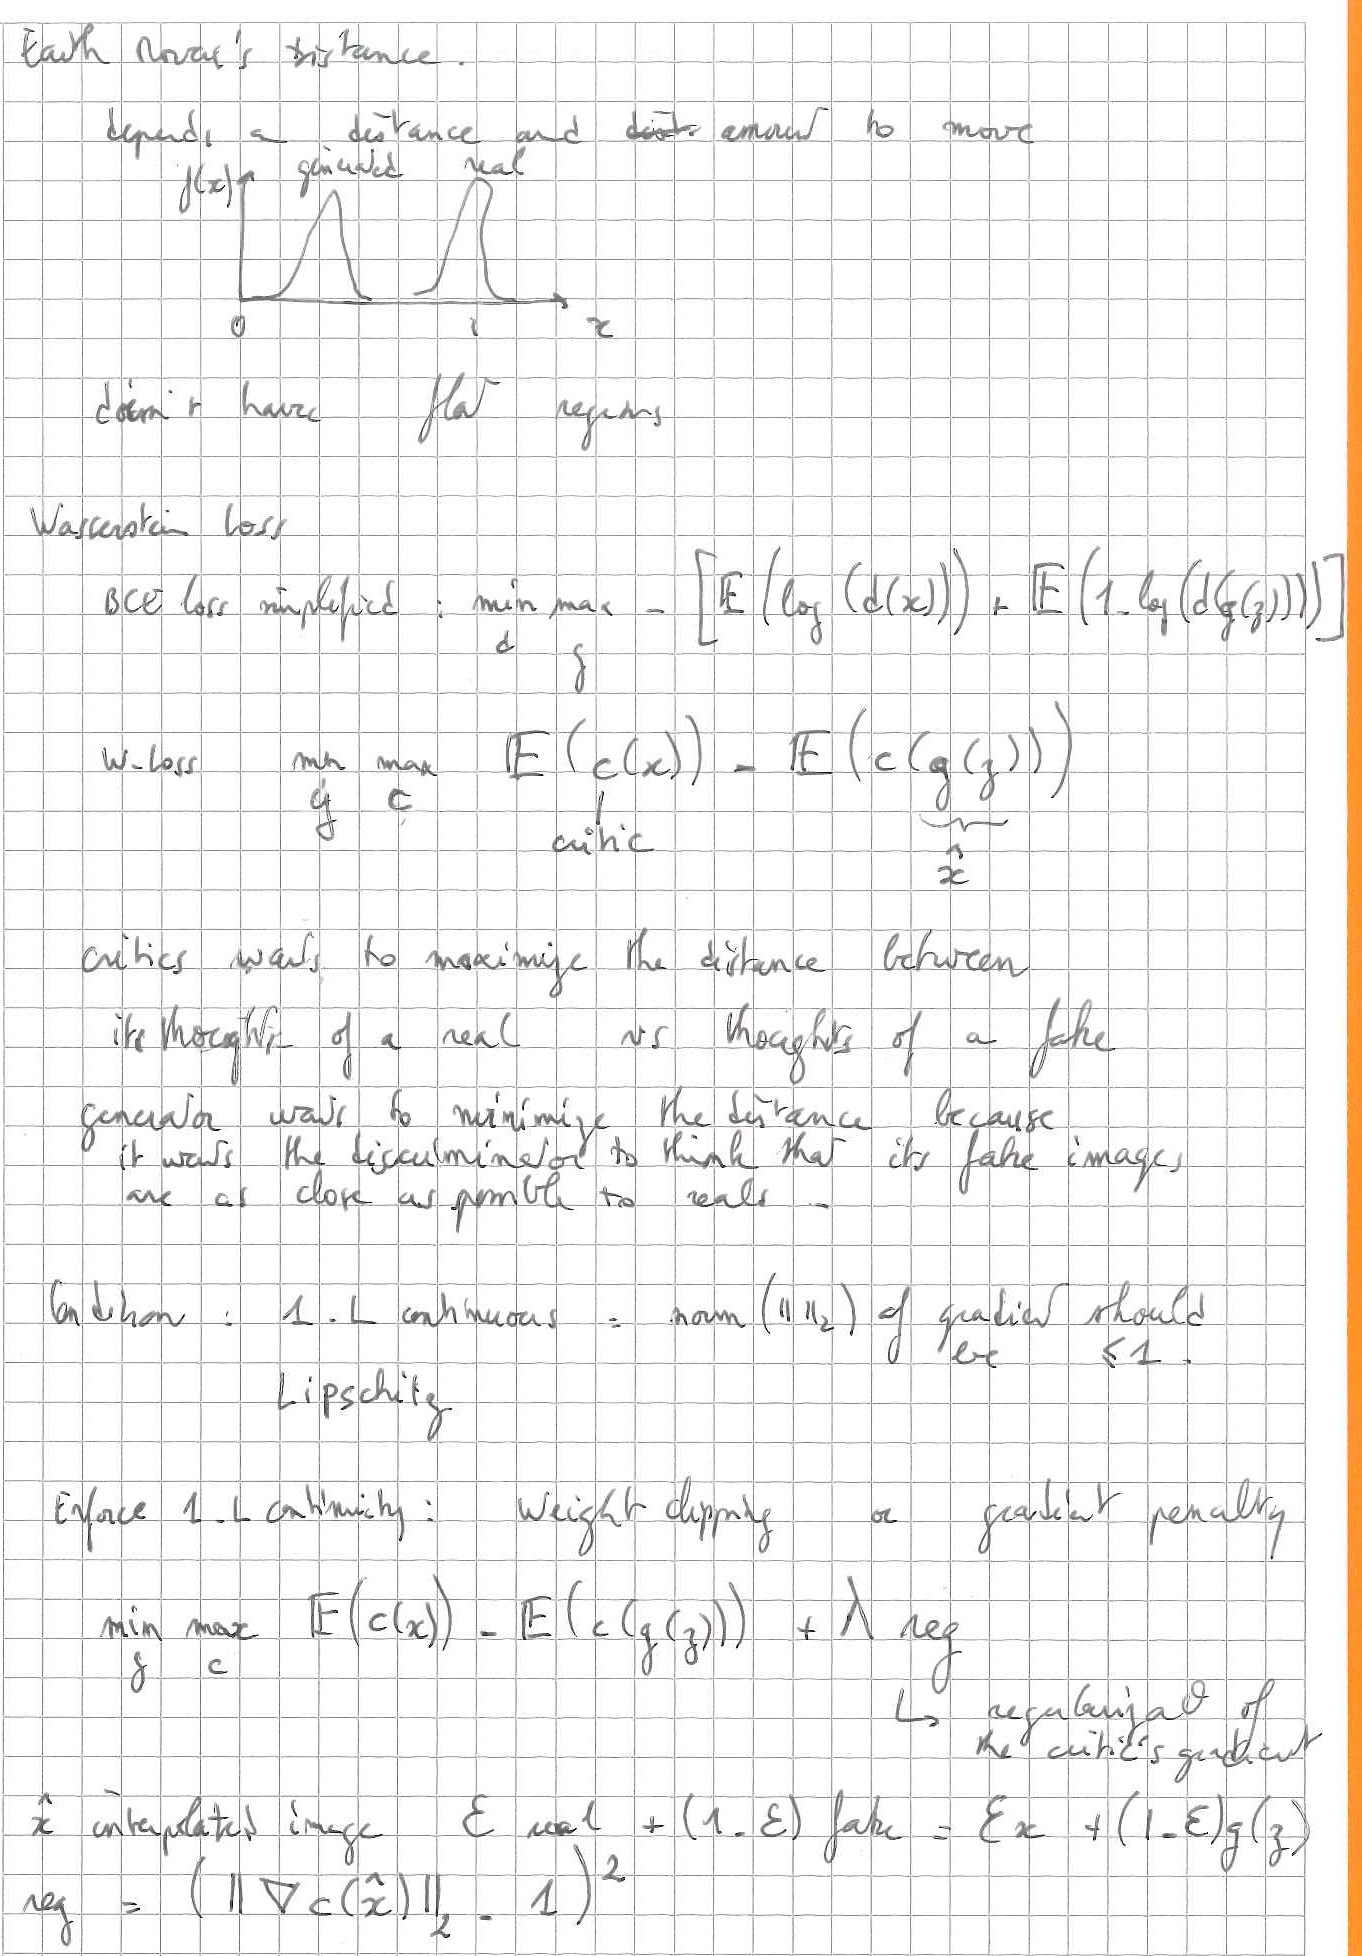 Earth Mover's Distance.
depends on distance and amount to move
f(x) generated real
0 1 x
doesn't have flat regions
Wasserstein loss
BCE loss simplified : min max - [𝔼(log(d(x))) + 𝔼(1-log(d(g(z))))]
d g
W-Loss min max 𝔼(c(x)) - 𝔼(c(g(z)))
g c
critic x̂
critics wants to maximize the distance between
its thoughts of a real vs thoughts of a fake
generator wants to minimize the distance because
it wants the discriminator to think that its fake images
are as close as possible to reals.
Condition : 1-L continuous = norm (|| ||₂) of gradient should
be ≤ 1.
Lipschitz
Enforce 1-L continuity : Weight clipping or gradient penalty
min max 𝔼(c(x)) - 𝔼(c(g(z))) + λ reg
g c
↳ regularizat° of
the critic's gradient
x̂ interpolated image ε real + (1-ε) fake = εx + (1-ε)g(z)
reg = (||∇c(x̂)||₂ - 1)²